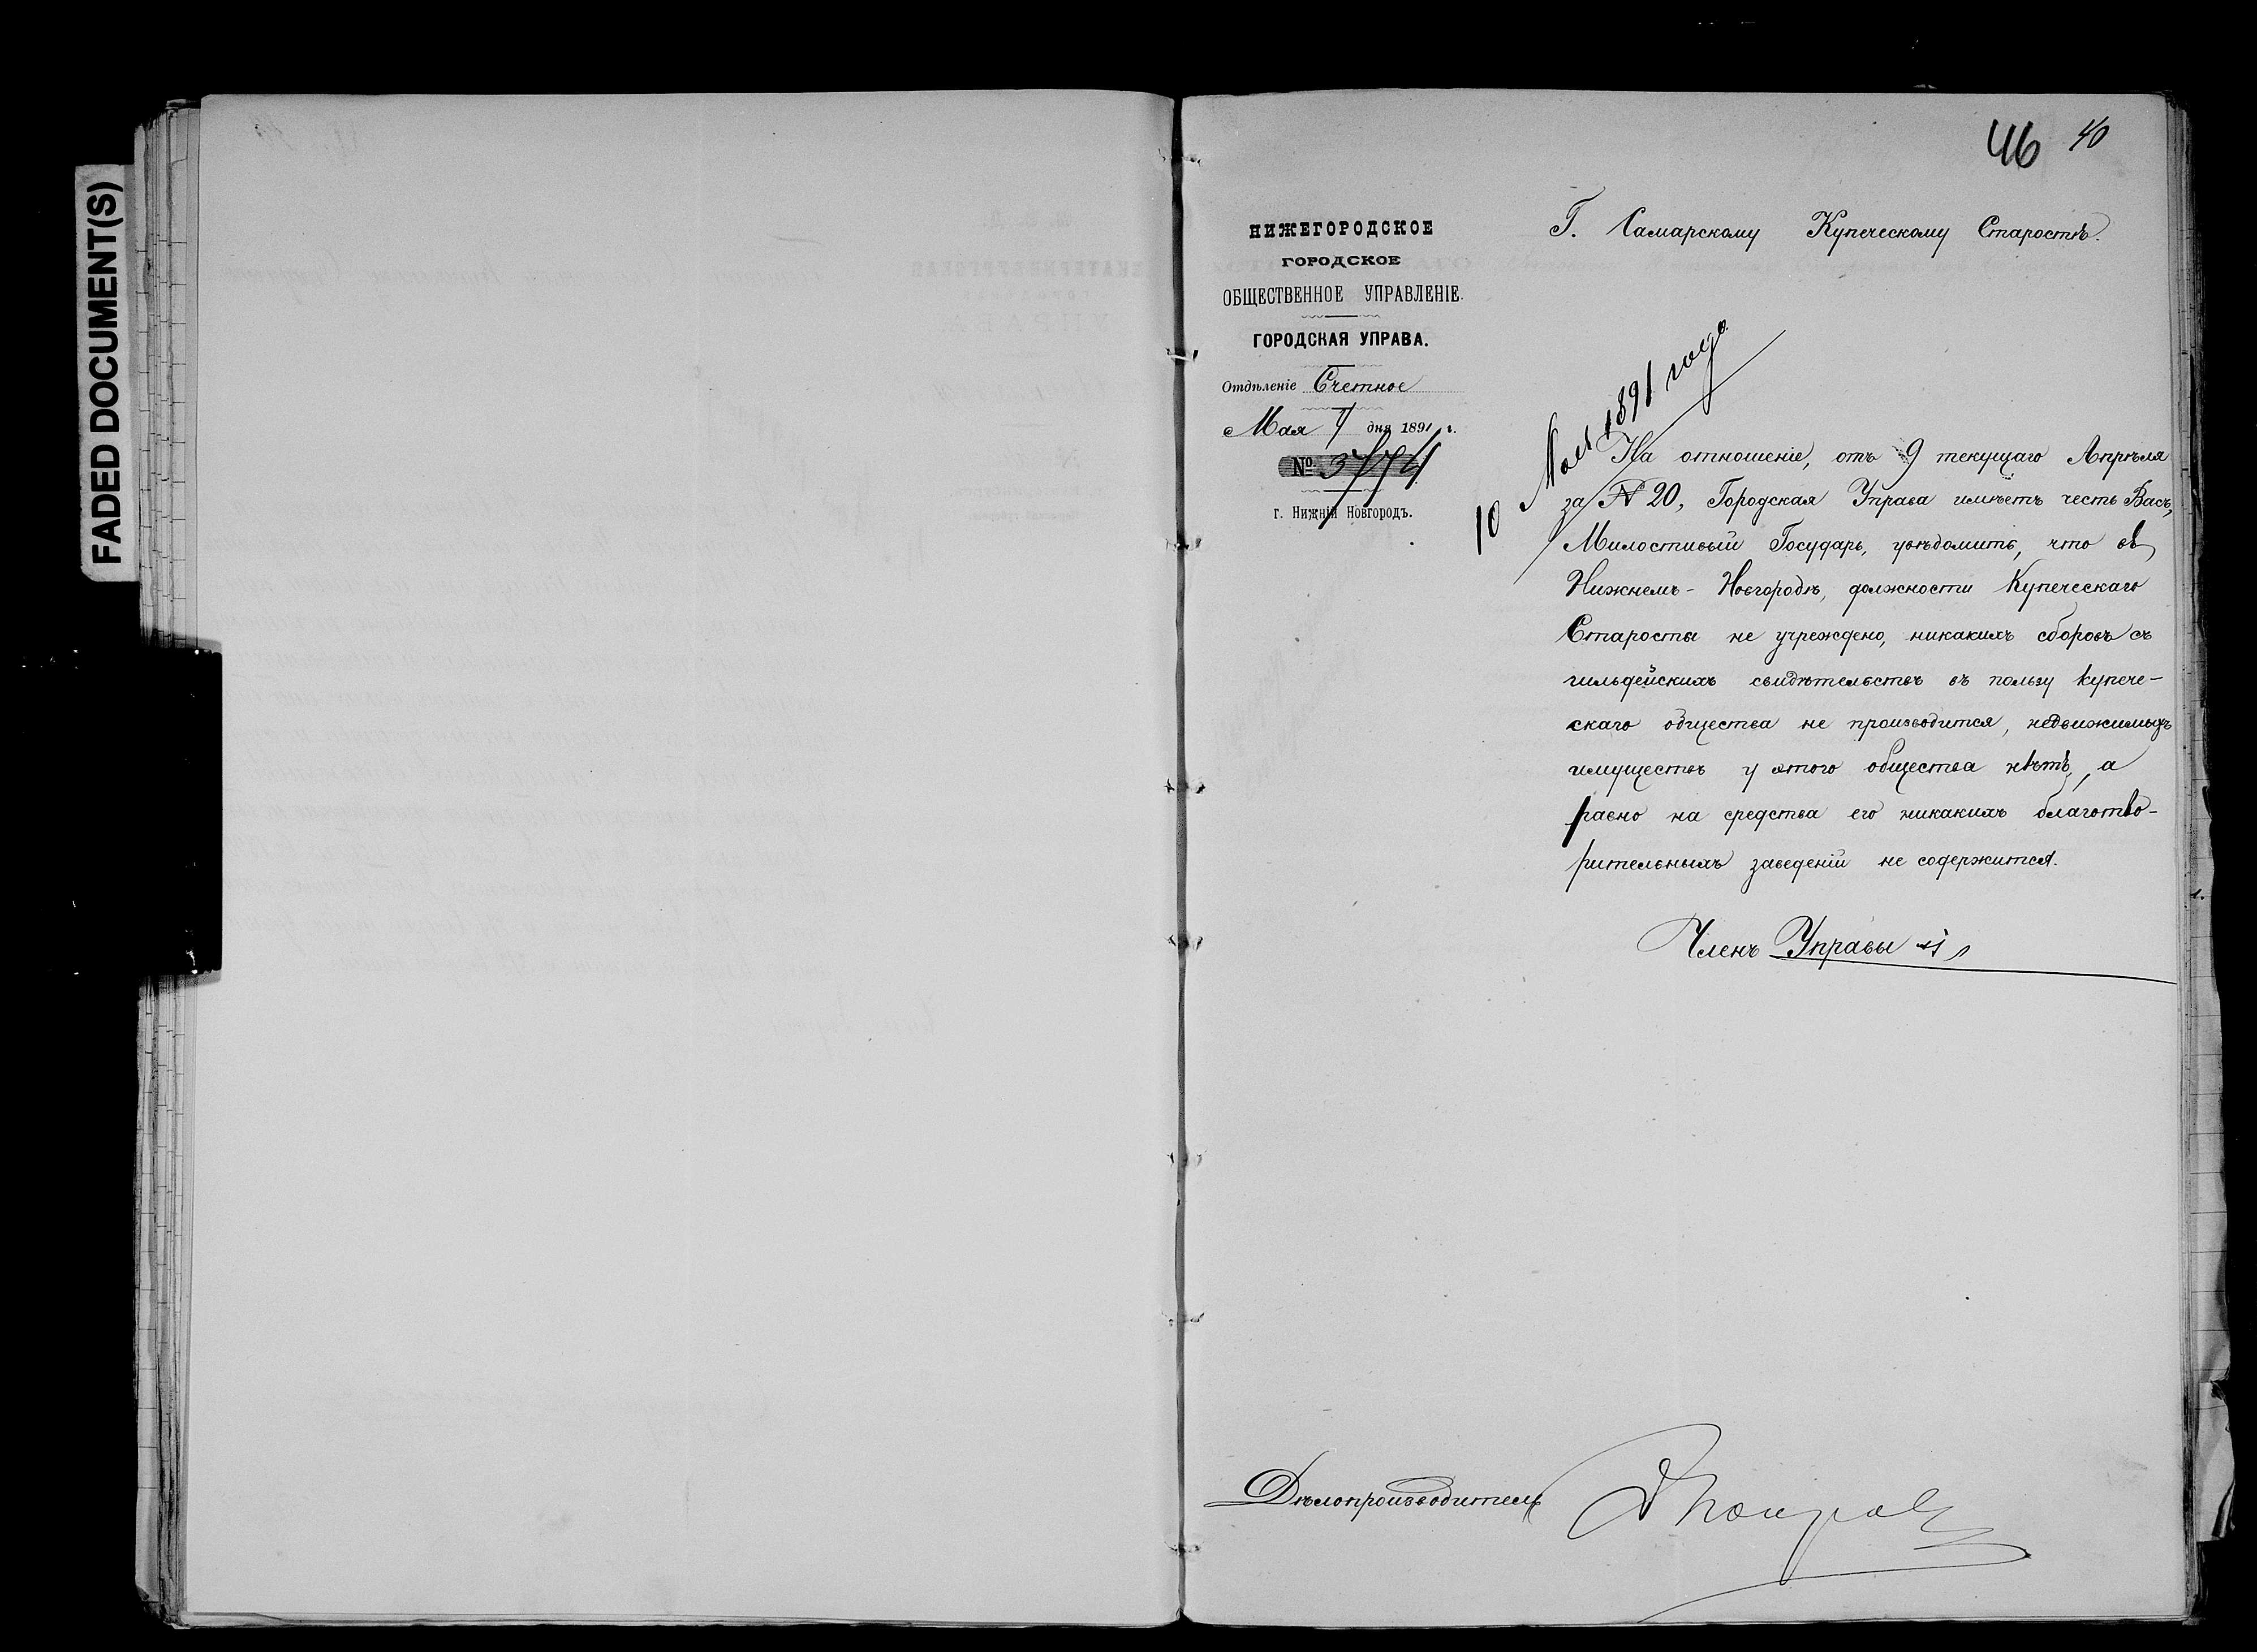 FADED DOCUMENT(S)
46 40
НИЖЕГОРОДСКОЕ
ГОРОДСКОЕ
ОБЩЕСТВЕННОЕ УПРАВЛЕНІЕ.
ГОРОДСКАЯ УПРАВА.
Отдѣленіе Счетное
Мая дня 1891 г.
№ 3774
г. Нижній Новгородъ.
Г. Самарскому Купеческому Старостѣ.
10 Мая 1891 года
На отношеніе, отъ 9 текущаго Апрѣля
за № 20, Городская Управа имѣетъ честь Васъ,
Милостивый Государь, увѣдомить, что въ
Нижнемъ-Новгородѣ, должности Купеческаго
Старосты не учреждено, никакихъ сборовъ съ
гильдейскихъ свидѣтельствъ въ пользу купече-
скаго общества не производится, недвижимыхъ
имуществъ у этого общества нѣтъ, а
равно на средства его никакихъ благотво-
рительныхъ заведеній не содержится.
Членъ Управы
Дѣлопроизводитель